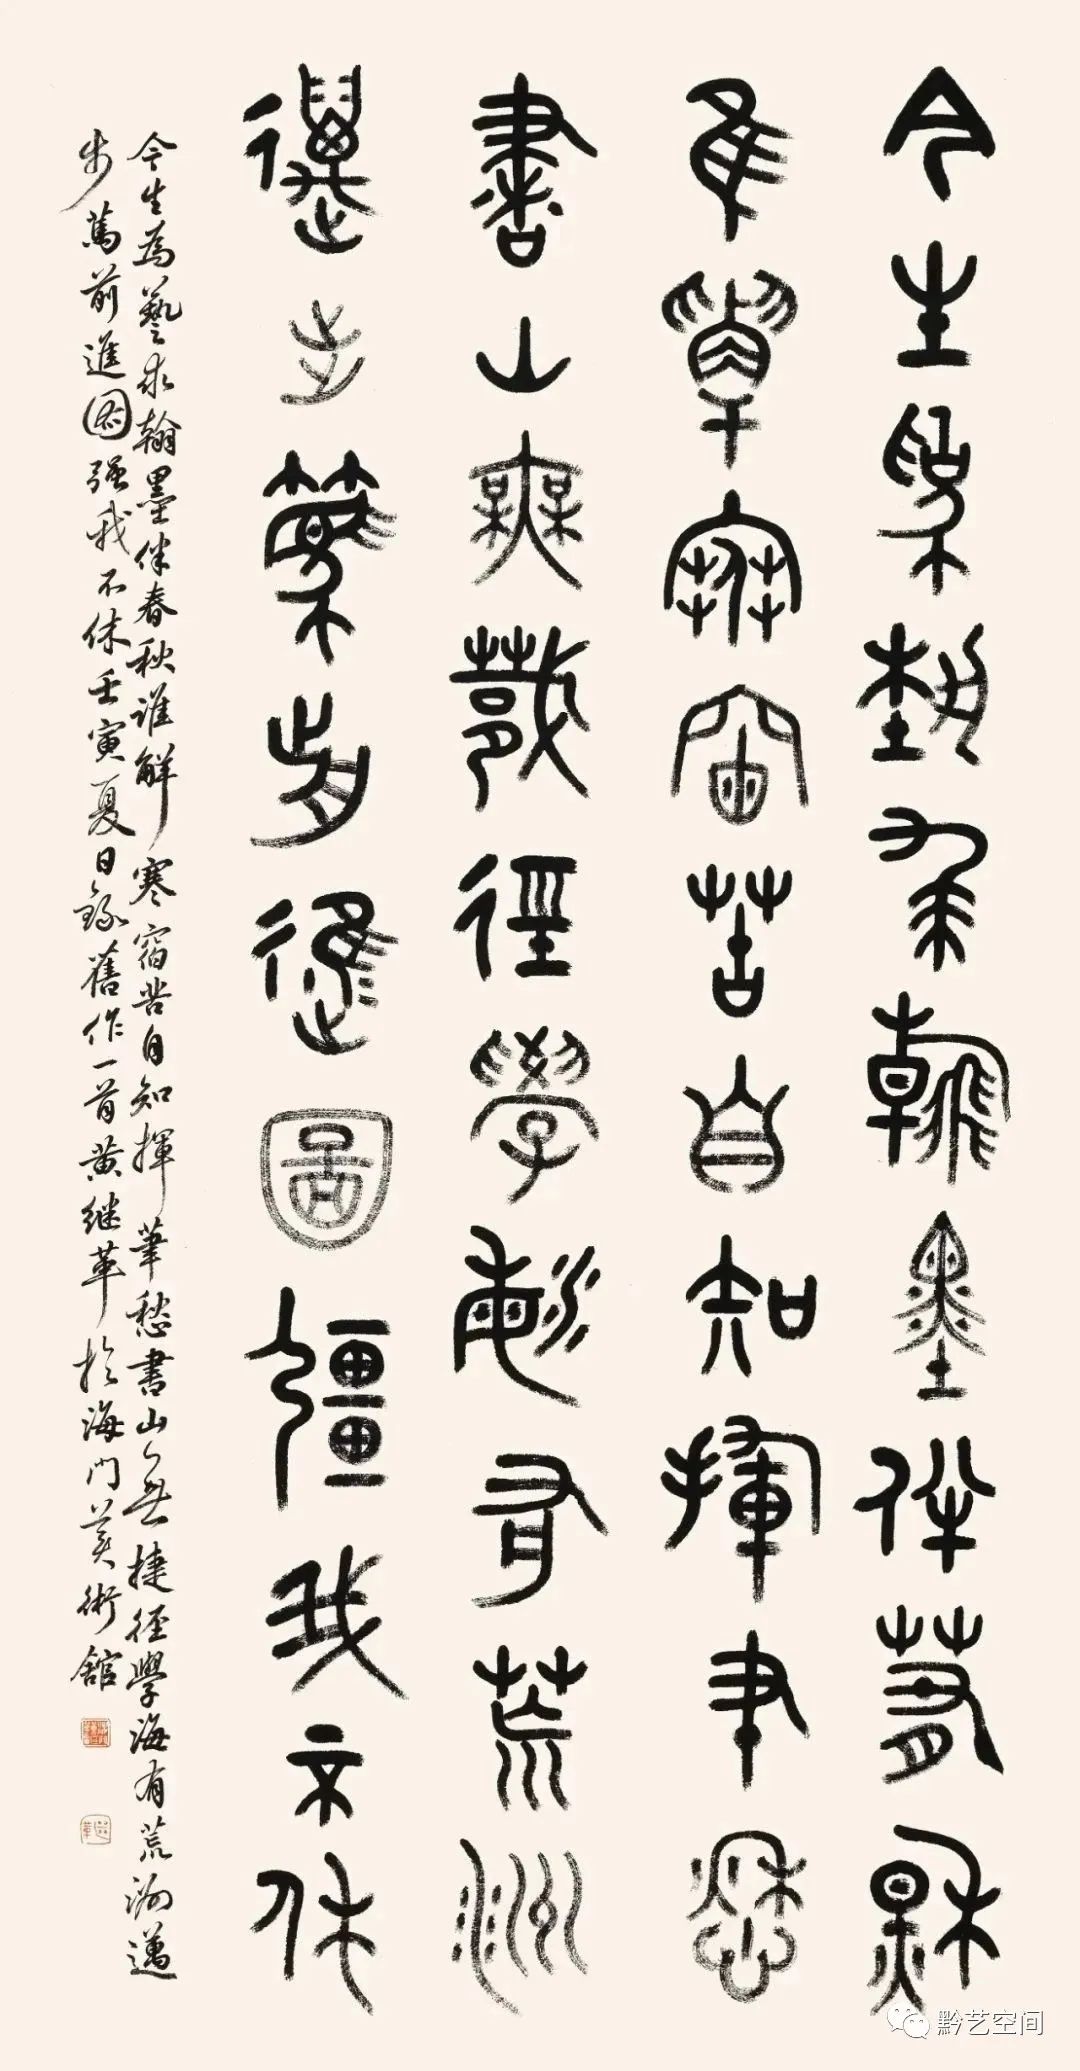 今生為藝求翰墨伴春秋
誰解寒窗苦自知揮筆愁
書山無捷徑學海有荒洲
邁步篤前進圖強我不休
今生為藝求翰墨伴春秋誰解寒窗苦自知揮筆愁書山無捷徑學海有荒洲邁
步篤前進圖强我不休壬寅夏日錄舊作一首黄继革於海門美術館
黔艺空间